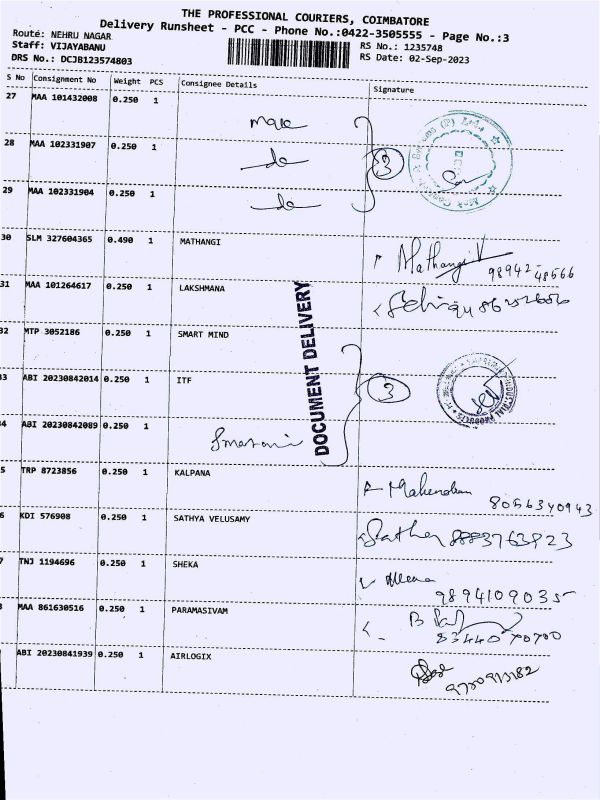 THE PROFESSIONAL COURIERS, COIMBATORE
Delivery Runsheet - PCC - Phone No.:0422-3505555 - Page No.:3
Route: NEHRU NAGAR
Staff: VIJAYABANU
RS No.: 1235748
DRS No.: DCJB123574803
RS Date: 02-Sep-2023
S No Consignment No Weight PCS Consignee Details Signature
27 MAA 101432008 0.250 1
28 MAA 102331907 0.250 1
3
29 MAA 102331904 0.250 1
30 SLM 327604365 0.490 1 MATHANGI
Mathangi V
98942-48566
31 MAA 101264617 0.250 1 LAKSHMANA
DOCUMENT DELIVERY
32 MTP 3052186 0.250 1 SMART MIND
33 ABI 20230842014 0.250 1 ITF
3
34 ABI 20230842089 0.250 1
5 TRP 8723856 0.250 1 KALPANA
8056340943
6 KDI 576908 0.250 1 SATHYA VELUSAMY
8883763923
7 TNJ 1194696 0.250 1 SHEKA
9894109035
8 MAA 861630516 0.250 1 PARAMASIVAM
83440 70700
ABI 20230841939 0.250 1 AIRLOGIX